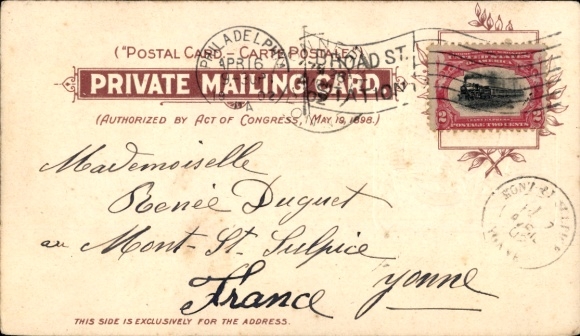 ("Postal Card – Carte Postale")
PRIVATE MAILING CARD
(Authorized by Act of Congress, May 19, 1898.)
PHILADELPHIA
APR 16
PA
BROAD ST.
STATION
UNITED STATES
OF AMERICA
2 2
POSTAGE TWO CENTS
Mademoiselle
Renée Duguet
au Mont-St-Sulpice
Yonne
France
THIS SIDE IS EXCLUSIVELY FOR THE ADDRESS.